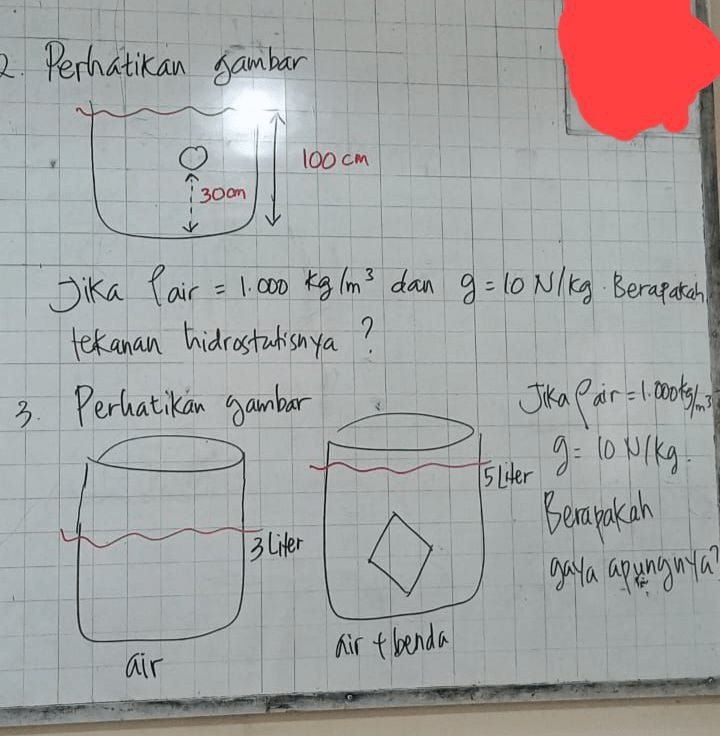 2. Perhatikan gambar
100 cm
30cm
Jika ρair = 1.000 kg/m³ dan g = 10 N/kg. Berapakah
tekanan hidrostatisnya ?
3. Perhatikan gambar
3 Liter
air
5 Liter
air + benda
Jika ρair = 1.000 kg/m³
g = 10 N/kg.
Berapakah
gaya apungnya?